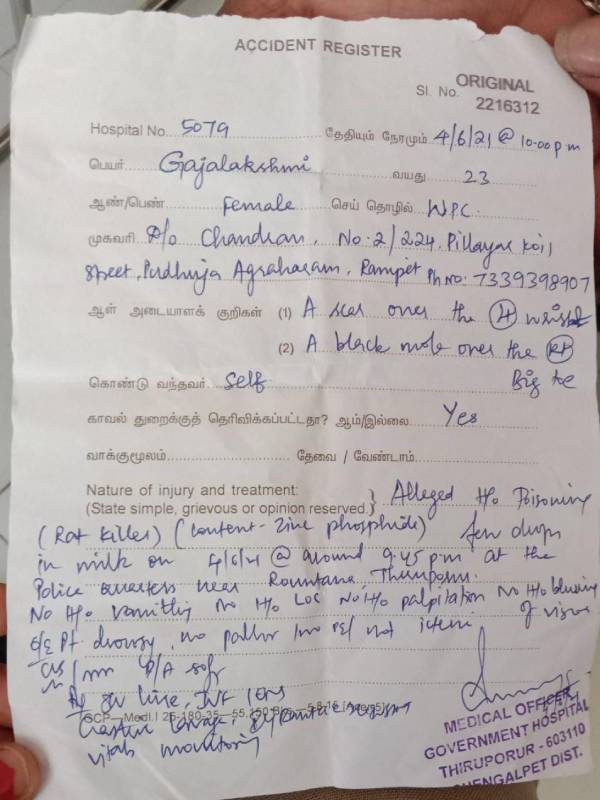 ACCIDENT REGISTER
ORIGINAL
Sl. No. 2216312
Hospital No. 5079 தேதியும் நேரமும் 4/6/21 @ 10.00 pm
பெயர் Gajalakshmi வயது 23
ஆண்/பெண் Female செய் தொழில் WPC.
முகவரி D/o Chandran, No: 2/224, Pillayar Koil
street, Pudhuja Agraharam, Rampet Ph No: 7339398907
ஆள் அடையாளக் குறிகள் (1) A scar over the wrist
(2) A black mole over the Rt
Big toe
கொண்டு வந்தவர் Self
காவல் துறைக்குத் தெரிவிக்கப்பட்டதா? ஆம்/இல்லை Yes
வாக்குமூலம் தேவை / வேண்டாம்.
Nature of injury and treatment:
(State simple, grievous or opinion reserved.) } Alleged H/o Poisoning
(Rat killer) (content - Zinc phosphide) few drops
in milk on 4/6/21 @ around 9.45 pm at the
Police quarters near Rountana Thiruporur.
No H/o vomitting No H/o LOC No H/o palpitation No H/o blurring
of vision
O/E Pt drowsy, no pallor not icteric
CVS P/A soft
IV line,
GCP—Medl.I 25-180-35—55,150 Bks
vitals monitoring
MEDICAL OFFICER
GOVERNMENT HOSPITAL
THIRUPORUR - 603110
CHENGALPET DIST.